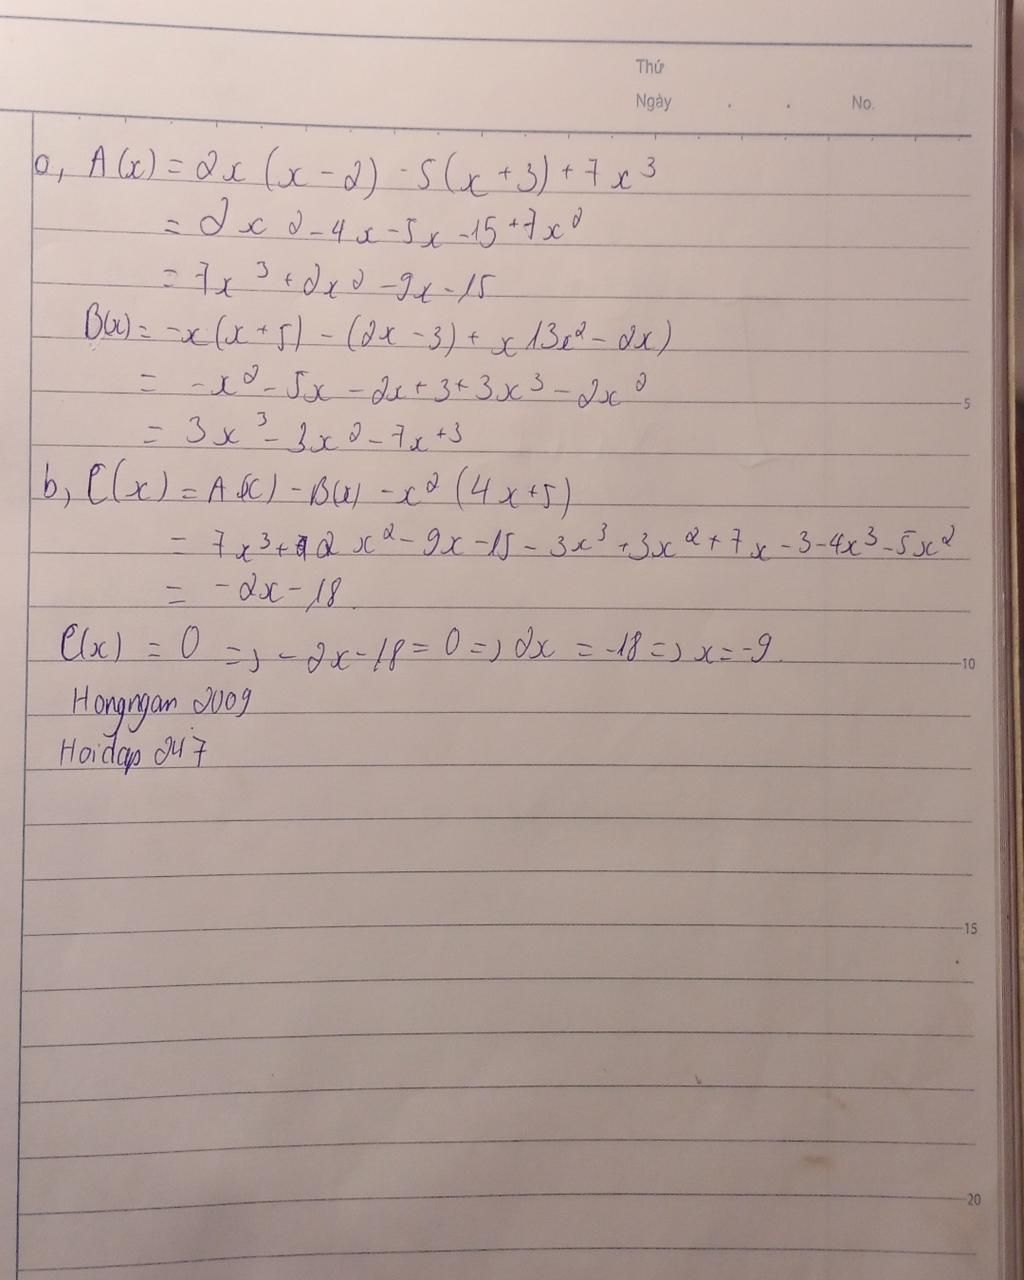 Thứ
Ngày . . No.
a, A(x) = 2x (x - 2) - 5(x + 3) + 7x³
= 2x² - 4x - 5x - 15 + 7x²
= 7x³ + 2x² - 9x - 15
B(x) = -x(x + 5) - (2x - 3) + x(3x² - 2x)
= -x² - 5x - 2x + 3 + 3x³ - 2x²
5
= 3x³ - 3x² - 7x + 3
b, C(x) = A(x) - B(x) - x² (4x + 5)
= 7x³ + 2x² - 9x - 15 - 3x³ + 3x² + 7x - 3 - 4x³ - 5x²
= -2x - 18
C(x) = 0 => -2x - 18 = 0 => 2x = -18 => x = -9
10
Hongngan 2009
Hoidap 247
15
20